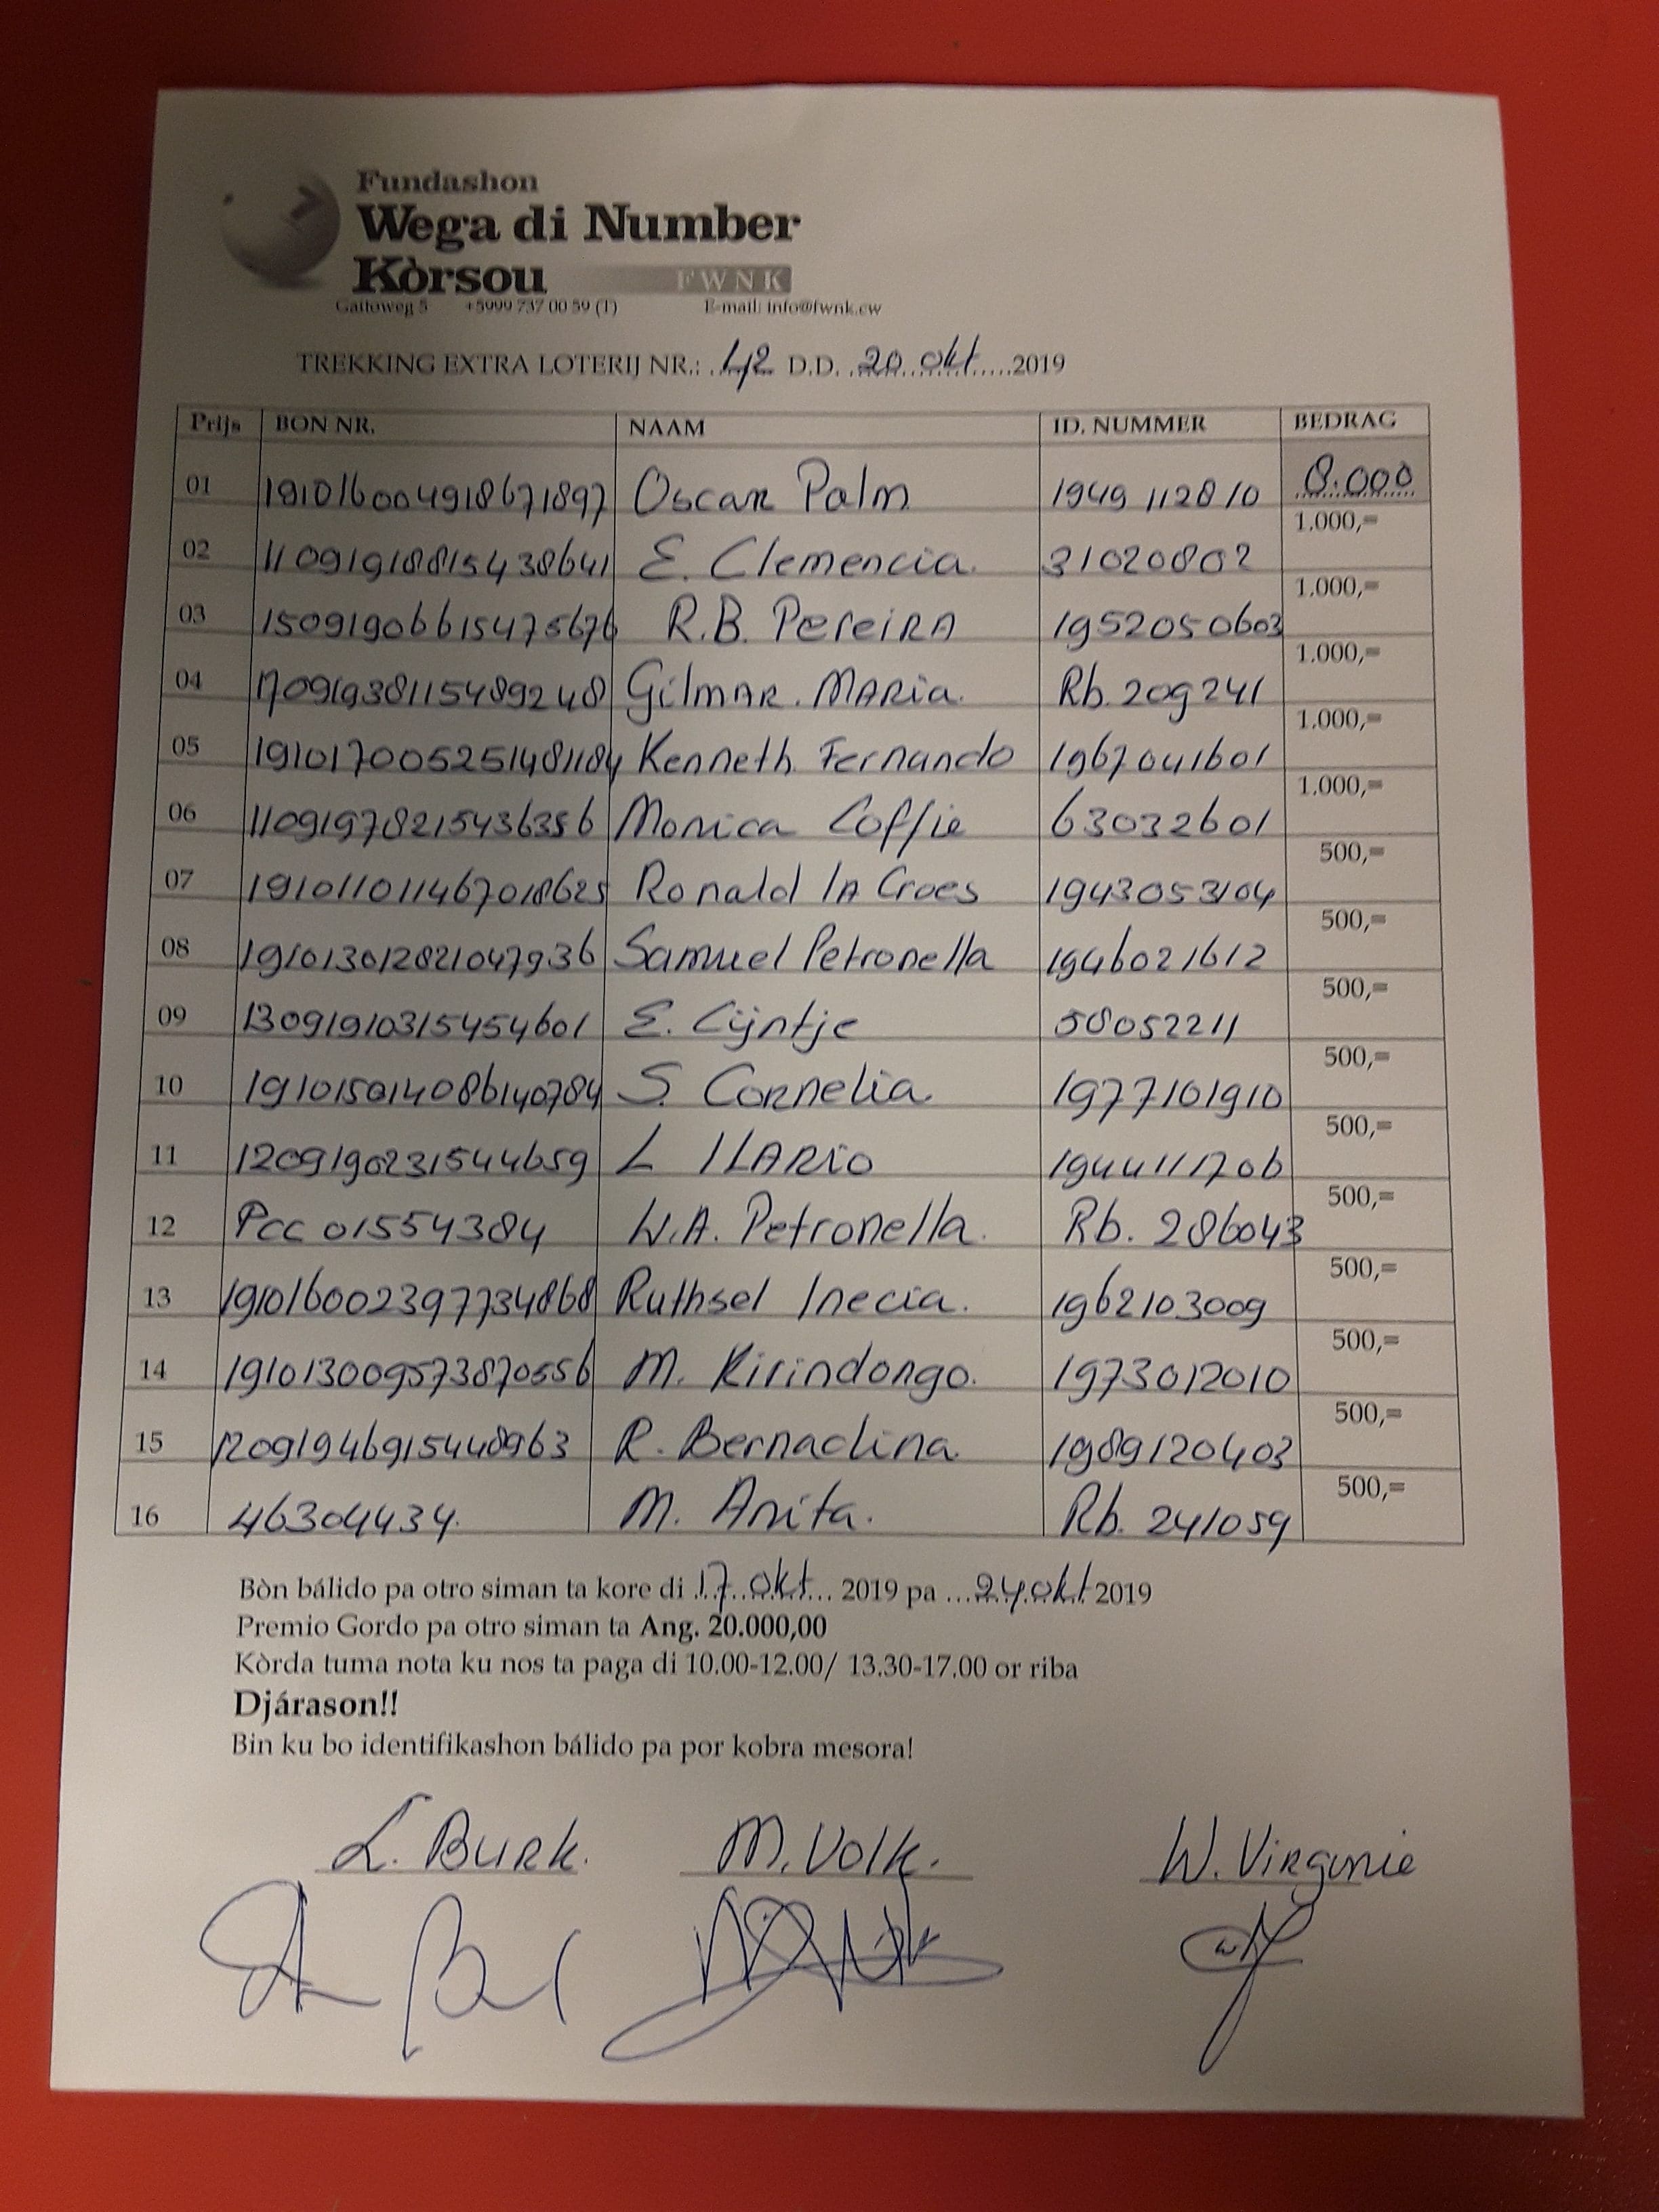 Fundashon
Wega di Number
Kòrsou FWNK
Gaitoweg 5 +5999 737 00 59 (T) E-mail: info@fwnk.cw
TREKKING EXTRA LOTERIJ NR.: 42 D.D. 20 okt 2019
Prijs BON NR. NAAM ID. NUMMER BEDRAG
01 191016004918671897 Oscar Palm 1949112810 8.000
02 11091918815438641 E. Clemencia. 31020802 1.000,=
03 15091906615475676 R.B. Pereira 1952050603 1.000,=
04 17091938115489248 Gilmar. Maria. Rb. 209241 1.000,=
05 191017005251481184 Kenneth Fernando 1967041601 1.000,=
06 110919782154363 56 Monica Coffie 63032601 1.000,=
07 191011011467018625 Ronald la Croes 1943053104 500,=
08 191013012821047936 Samuel Petronella 1946021612 500,=
09 13091910315454601 E. Cijntje 58052211 500,=
10 1910150140861407 84 S. Cornelia 1977101910 500,=
11 120919023154 4659 L ILARIO 1944111706 500,=
12 Pcc 01554384 W.A. Petronella. Rb. 286043 500,=
13 1910160023977 34868 Ruthsel Inecia. 1962103009 500,=
14 1910130095738 70556 M. Kirindongo. 1973012010 500,=
15 120919469154 48963 R. Bernadina 1989120403 500,=
16 46304434. M. Anita. Rb. 241059 500,=
Bòn bálido pa otro siman ta kore di 17 okt 2019 pa 24 okt 2019
Premio Gordo pa otro siman ta Ang. 20.000,00
Kòrda tuma nota ku nos ta paga di 10.00-12.00/ 13.30-17.00 or riba
Djárason!!
Bin ku bo identifikashon bálido pa por kobra mesora!
L. Burk. M. Volk. W. Virginie